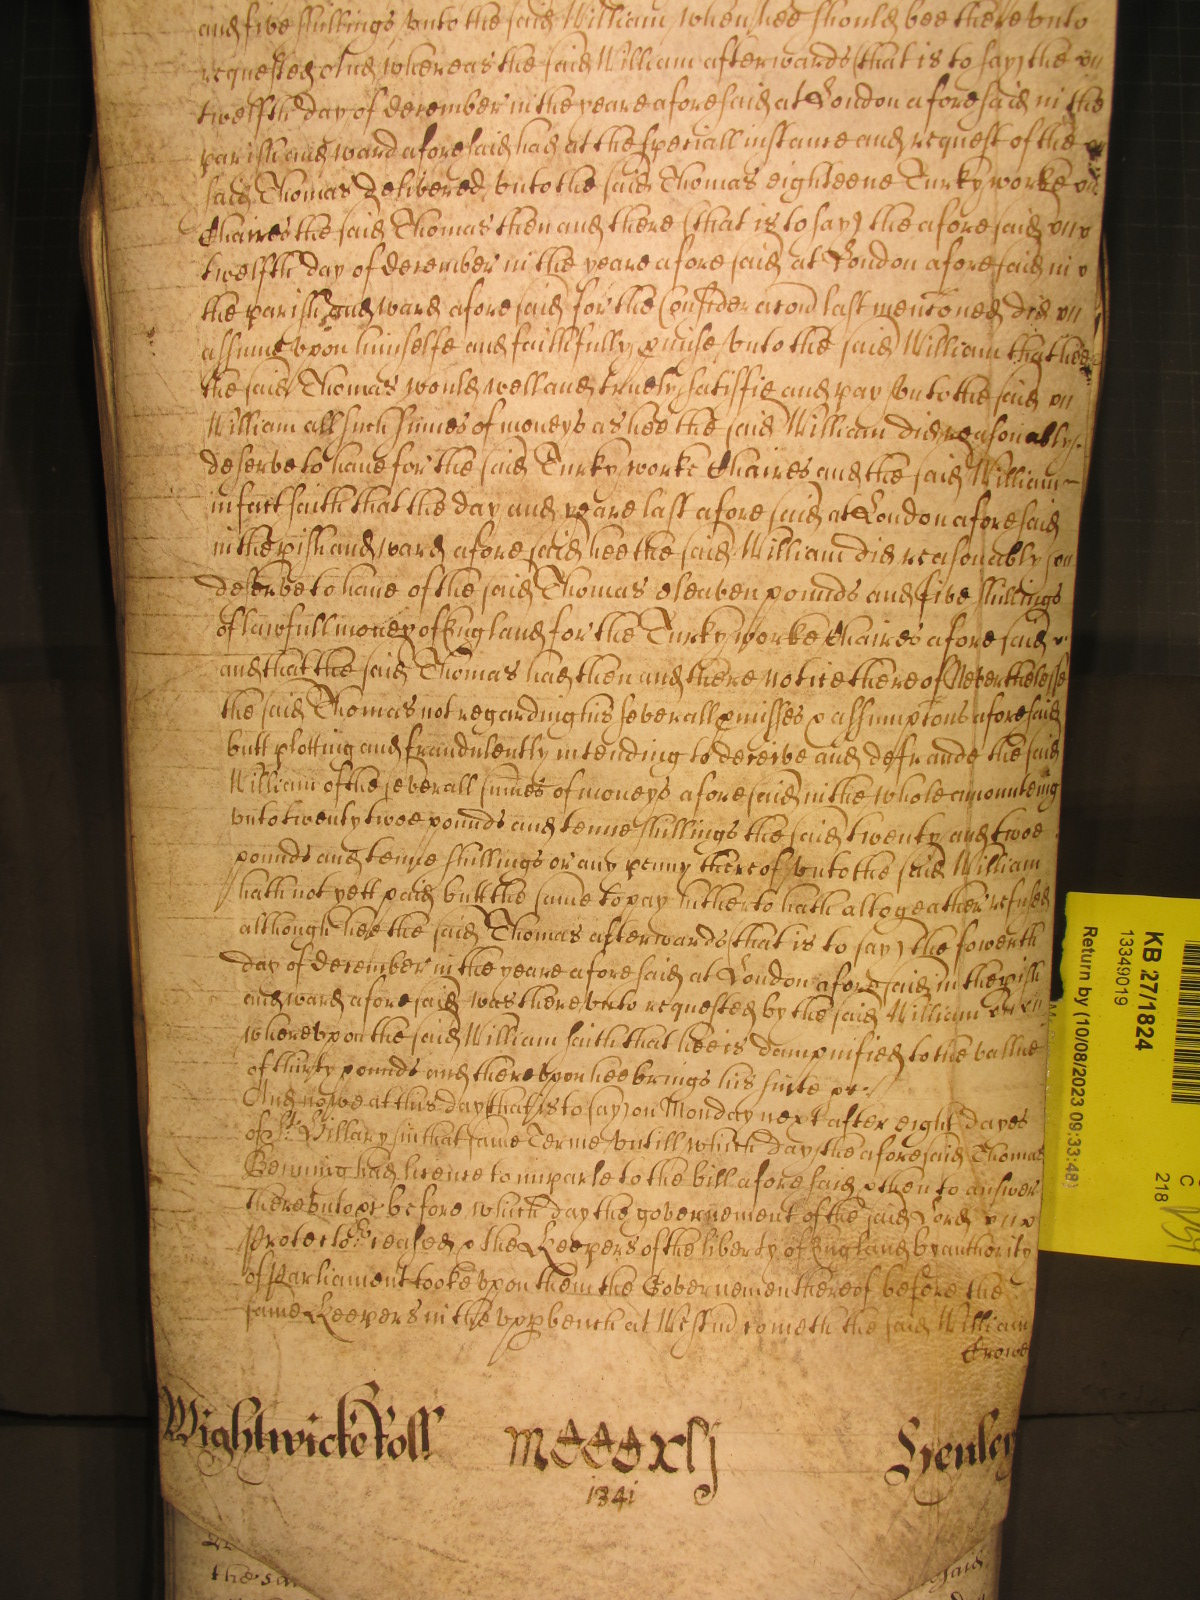 and five shillings vnto the said William when hee should bee therevnto
requested And whereas the said William afterwards (that is to say) the
twelfth day of december in the yeare aforesaid at London aforesaid in the
parish and ward aforesaid had at the speciall instance and request of the
said Thomas delivered vnto the said Thomas eighteene Turky worke
Chaires the said Thomas then and there (that is to say) the aforesaid
twelfth day of december in the yeare aforesaid at London aforesaid in
the parish and ward aforesaid for the Consideracon last mencioned did
assume vpon himselfe and faithfully pmise vnto the said William that hee
the said Thomas would well and truely satisfie and pay vnto the said
William all such summes of moneys as hee the said William did reasonably
deserve to haue for the said Turky worke Chaires and the said William
in fact saith that the day and yeare last aforesaid at London aforesaid
in the pish and ward aforesaid hee the said William did reasonably
deserve to haue of the said Thomas eleaven pounds and five shillings
of lawfull money of England for the Turky worke Chaires aforesaid
and that the said Thomas had then and there notice thereof Neverthelesse
the said Thomas not regarding his severall pmisses & assumptons aforesaid
butt plotting and fraudulently intending to deceive and defraude the said
William of the severall summes of moneys aforesaid in the whole amounteing
vnto twenty twoe pounds and tenne shillings the said twenty and twoe
pounds and tenne shillings or any penny thereof vnto the said William
hath not yett paid butt the same to pay hitherto hath altogeather refused
although hee the said Thomas afterwards (that is to say) the fowerth
day of december in the yeare aforesaid at London aforesaid in the pish
and ward aforesaid was therevnto requested by the said William
wherevpon the said William saith that hee is dampnified to the vallue
of thirty pounds and therevpon hee brings his suite &c.
And nowe at this day (that is to say) on Monday next after eight dayes
of St. Hillary in that same Terme vntill which day the aforesaid Thomas
Benning had licence to imparle to the bill aforesaid & then to answer
therevnto &c before which day the governement of the said Lord
Protector ceased & the Keepers of the liberty of England by authority
of Parliament tooke vpon them the Governement thereof before the
same Keepers in the vpp bench at Westm cometh the said William
Crowe
Wightwicke Roll MCCCxlj Henley
1341
the sa
said
KB 27/1824
13349019
Return by (10/08/2023 09:33:48)
C
218